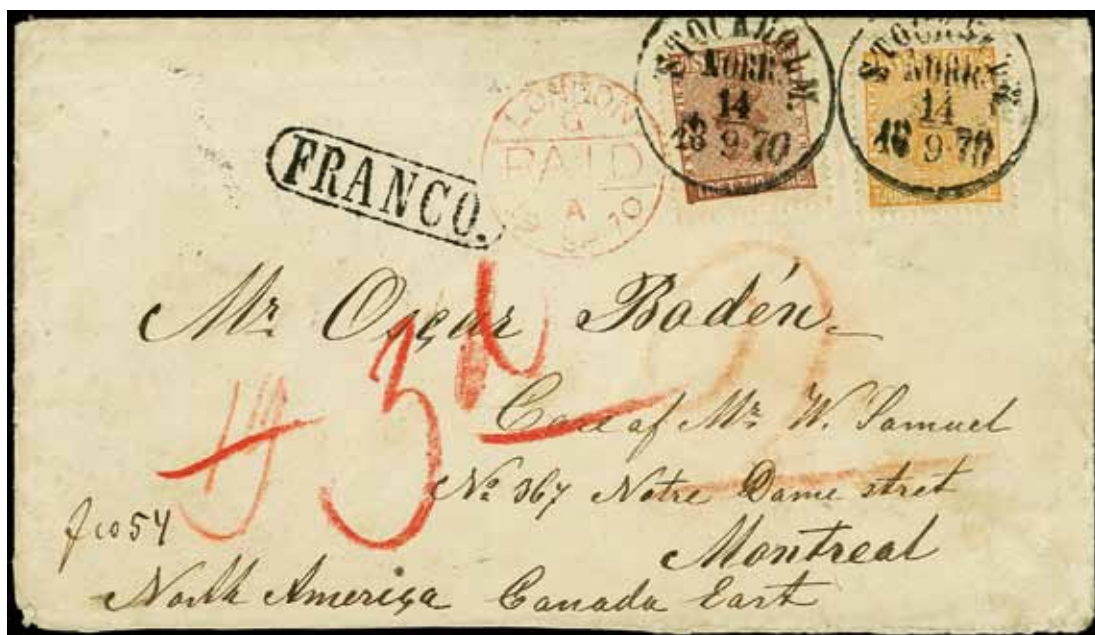 STOCKHOLM
NORR.
14
18 9 70
STOCKHOLM
NORR.
14
18 9 70
LONDON
G
PAID
A
70
FRANCO.
Mr Oscar Bodén.
3d
2
Care of Mr W. Samuel
No 367 Notre Dame stret
fco 54
Montreal
North America Canada East